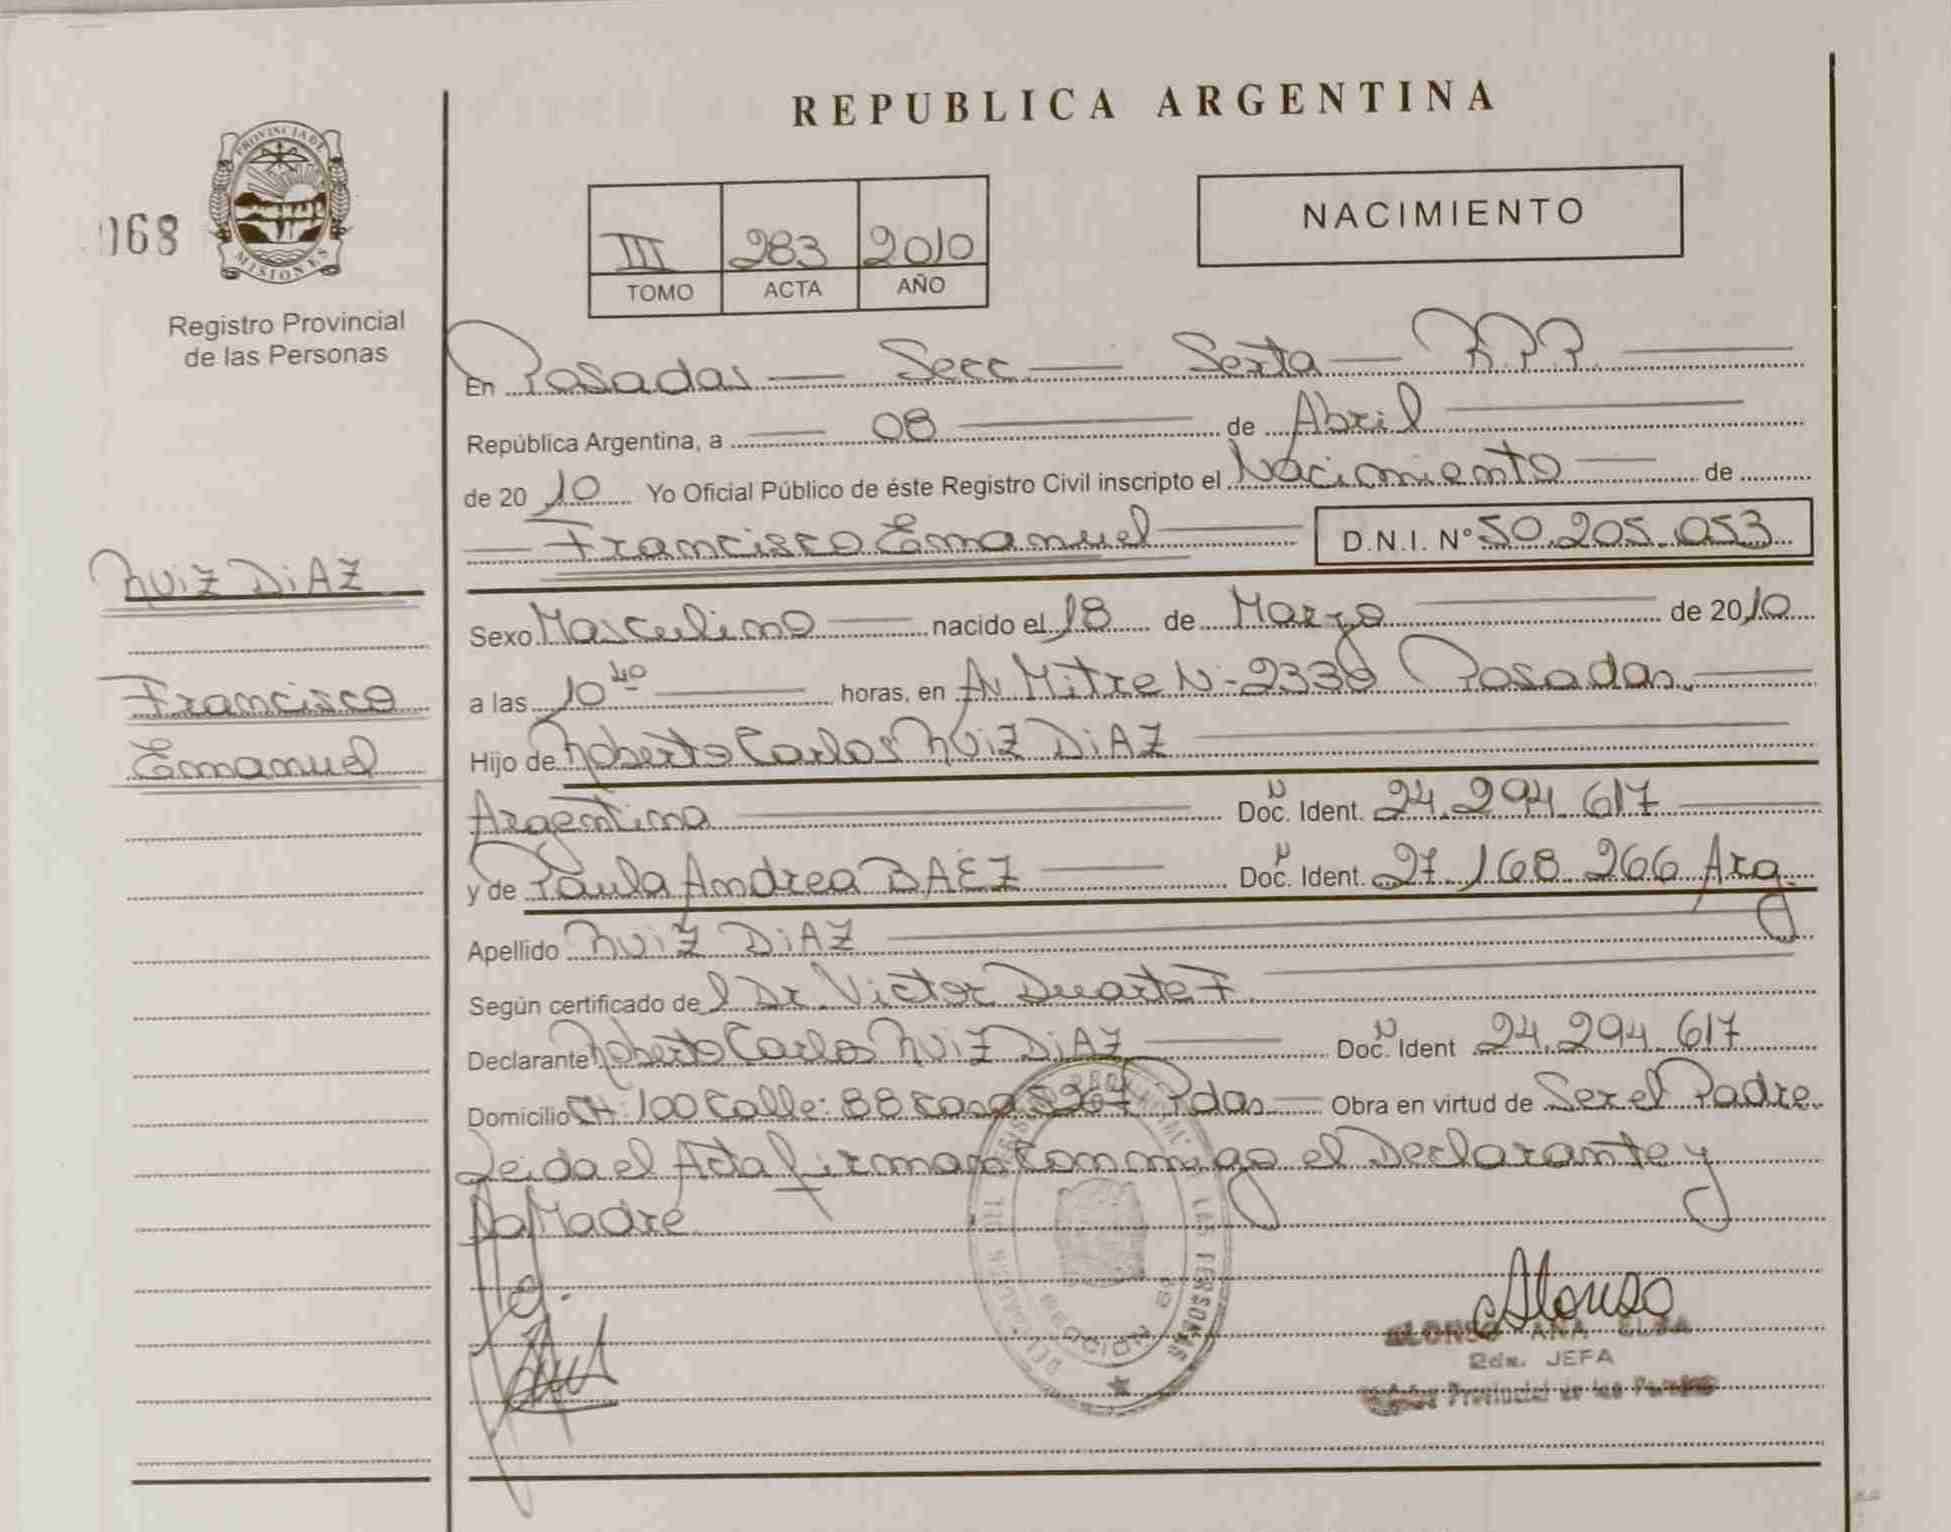 REPUBLICA ARGENTINA
PROVINCIA DE
MISIONES
068
Registro Provincial
de las Personas
III 283 2010
TOMO ACTA AÑO
NACIMIENTO
En Posadas — Secc. — Sexta — R.P.P.
República Argentina, a 08 de Abril
de 2010 Yo Oficial Público de éste Registro Civil inscripto el Nacimiento de
Francisco Emanuel D.N.I. N° 50.205.053
RUIZ DIAZ
Francisco
Emanuel
Sexo Masculino nacido el 18 de Marzo de 2010
a las 10 40 horas, en Av Mitre N- 2338 Posadas.
Hijo de Roberto Carlos RUIZ DIAZ
Argentino Doc. Ident. 24.294.617
y de Paula Andrea BAEZ Doc. Ident. 27.168.266 Arg.
Apellido RUIZ DIAZ
Según certificado del Dr. Victor Duarte F.
Declarante Roberto Carlos RUIZ DIAZ Doc. Ident 24.294.617
Domicilio CH: 100 Calle: 88 casa Pdas Obra en virtud de Ser el Padre
Leida el Acta firman conmigo el Declarante y
La Madre
Alonso
ALONSO ANA ELSA
JEFA
Provincial de las Personas